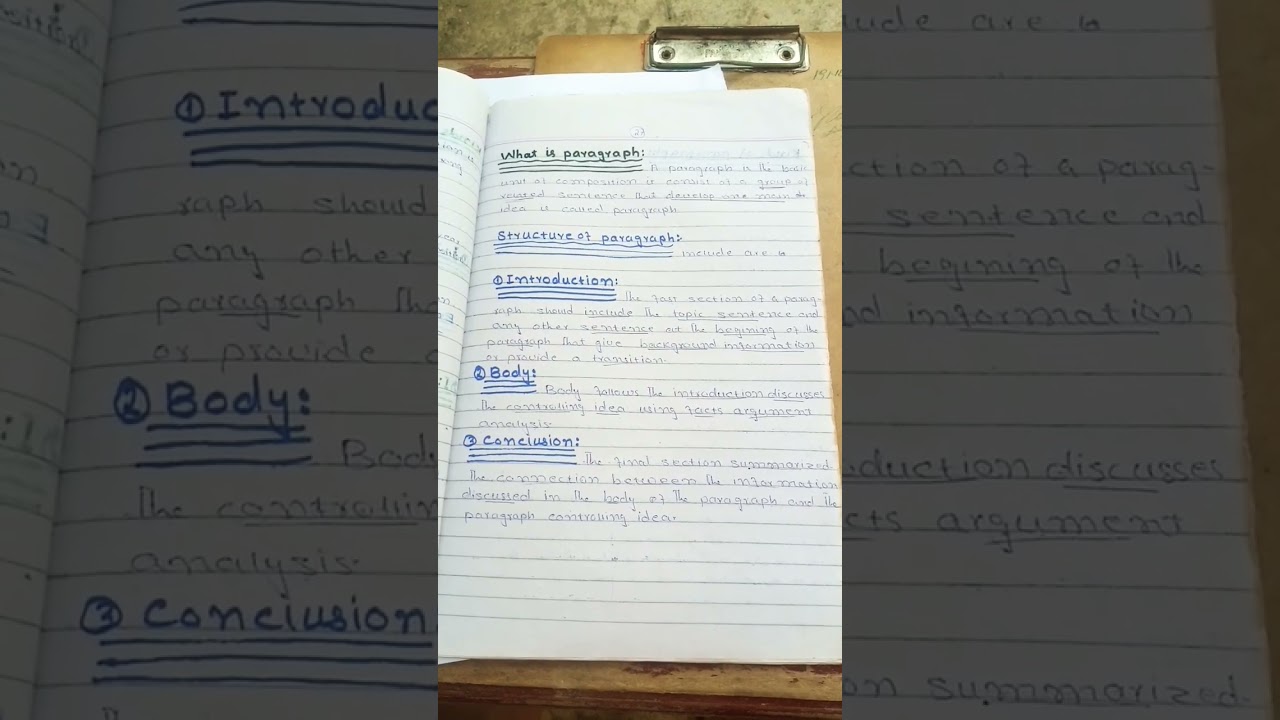 27
What is paragraph:
A paragraph is the basic
unit of composition it consist of a group of
related sentence that develop one main
idea is called paragraph
Structure of paragraph:-
include are
① Introduction:
The fast section of a parag-
raph should include the topic sentence and
any other sentence at the begining of the
paragraph that give background information
or provide a transition.
② Body:
Body follows the introduction discusses
the controlling idea using facts argument
analysis.
③ Conclusion:
The final section summarized
the connection between the information
discussed in the body of the paragraph and the
paragraph controlling idea.